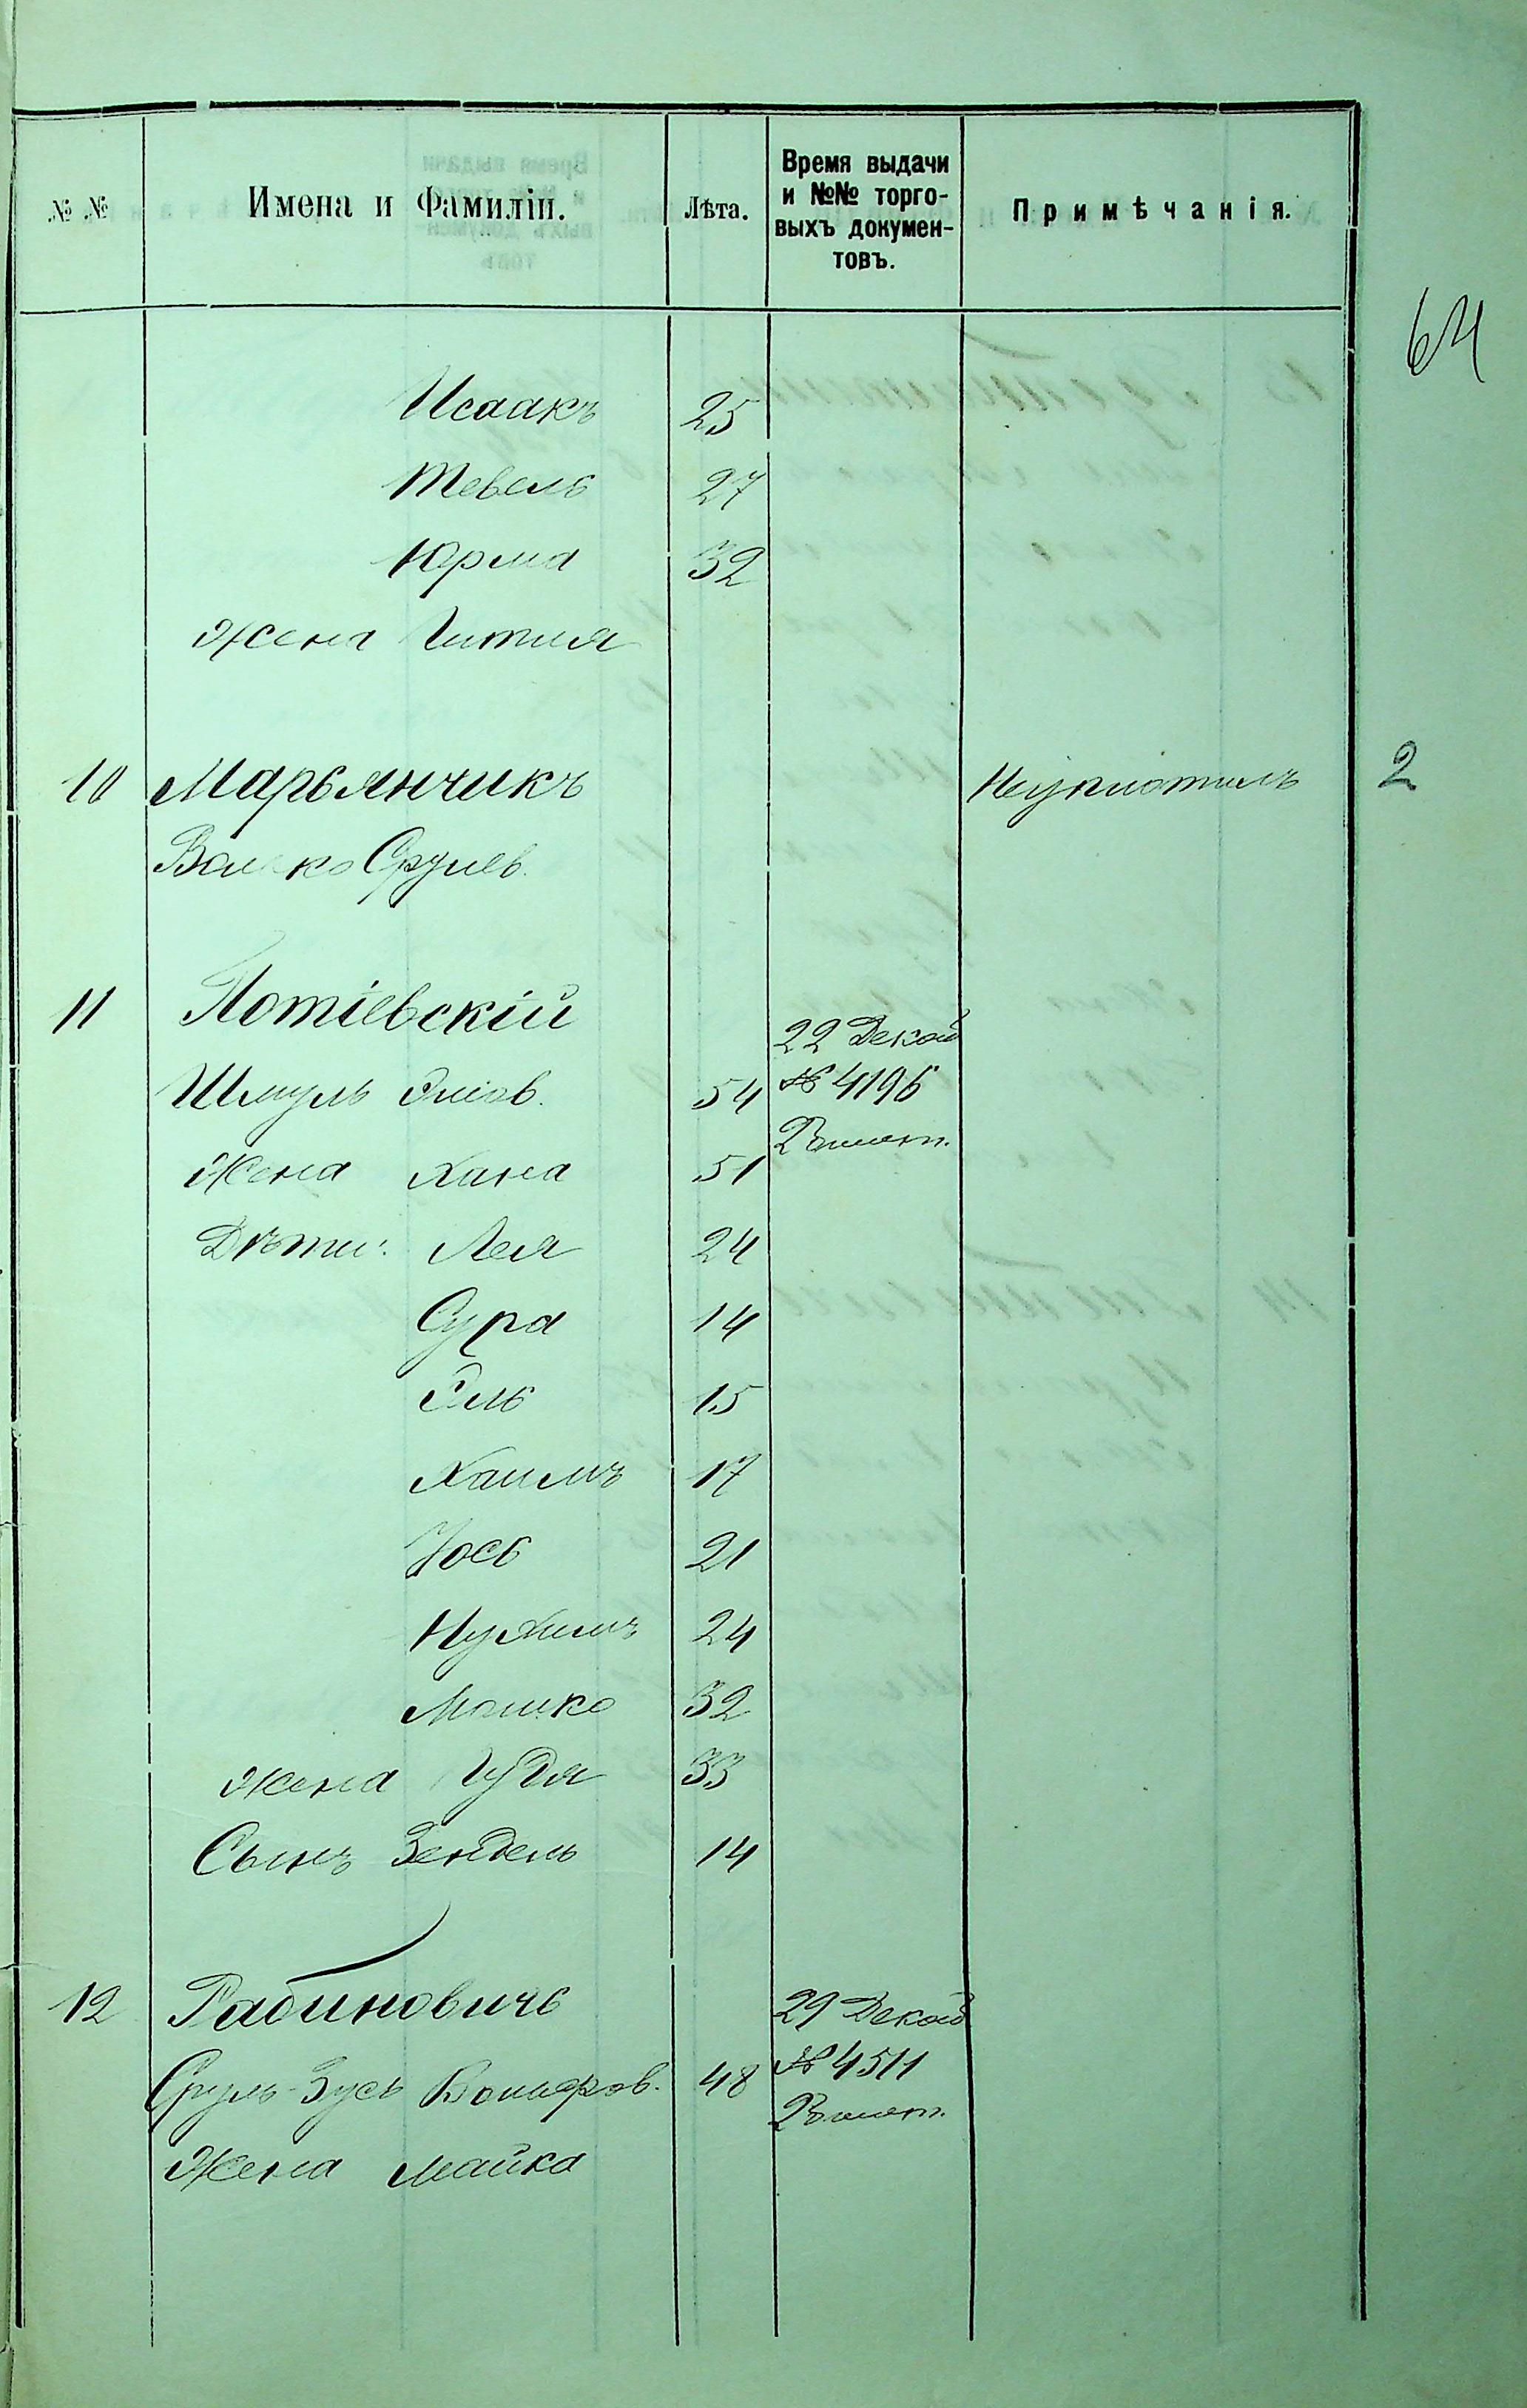 № № Имена и Фамиліи. Лѣта. Время выдачи и №№ торго-выхъ докумен-товъ. Примѣчанія.
64
Исаакъ 25
Тевель 27
Юрма 32
Жена Гитля
10 Марьянчикъ Неуплотилъ 2
Волько Срулев.
11 Потіевскій 22 Декаб
Шмуль Эліов. 54 № 4196
2 билет.
Жена Хана 51
Дѣти: Лея 24
Сура 14
Эль 15
Хаимъ 17
Іось 21
Нухимъ 24
Мошко 32
Жена Гудя 33
Сынъ Зендель 14
12 Рабиновичь 29 Декаб
Сруль-Зусь 48 № 4511
2 билет.
Жена Майка